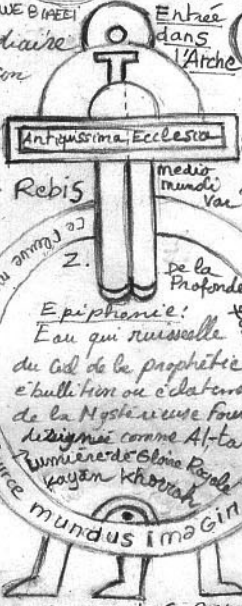 Entrée
dans
l'Arche
diaire
Antiquissima Ecclesia
Rebis
medio
mundi
Var
ce fleuve
Z.
De la
Profonde
Epiphanie:
Eau qui ruisselle
du ciel de la prophétie
ébullition ou
de la Mystérieuse
désignée comme Al-ta
Lumière de Gloire Royale
Kayân Khorrah
mundus imagin